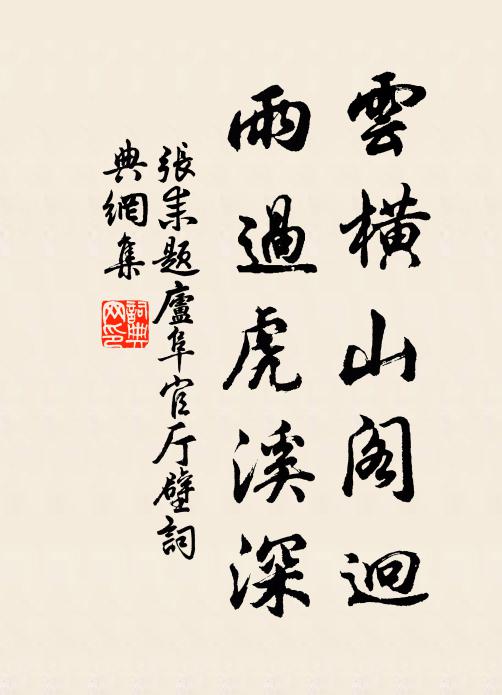 雲橫山阁迥
雨過虎溪深
張耒題廬阜官厅壁詞
典網集
詞典
网印